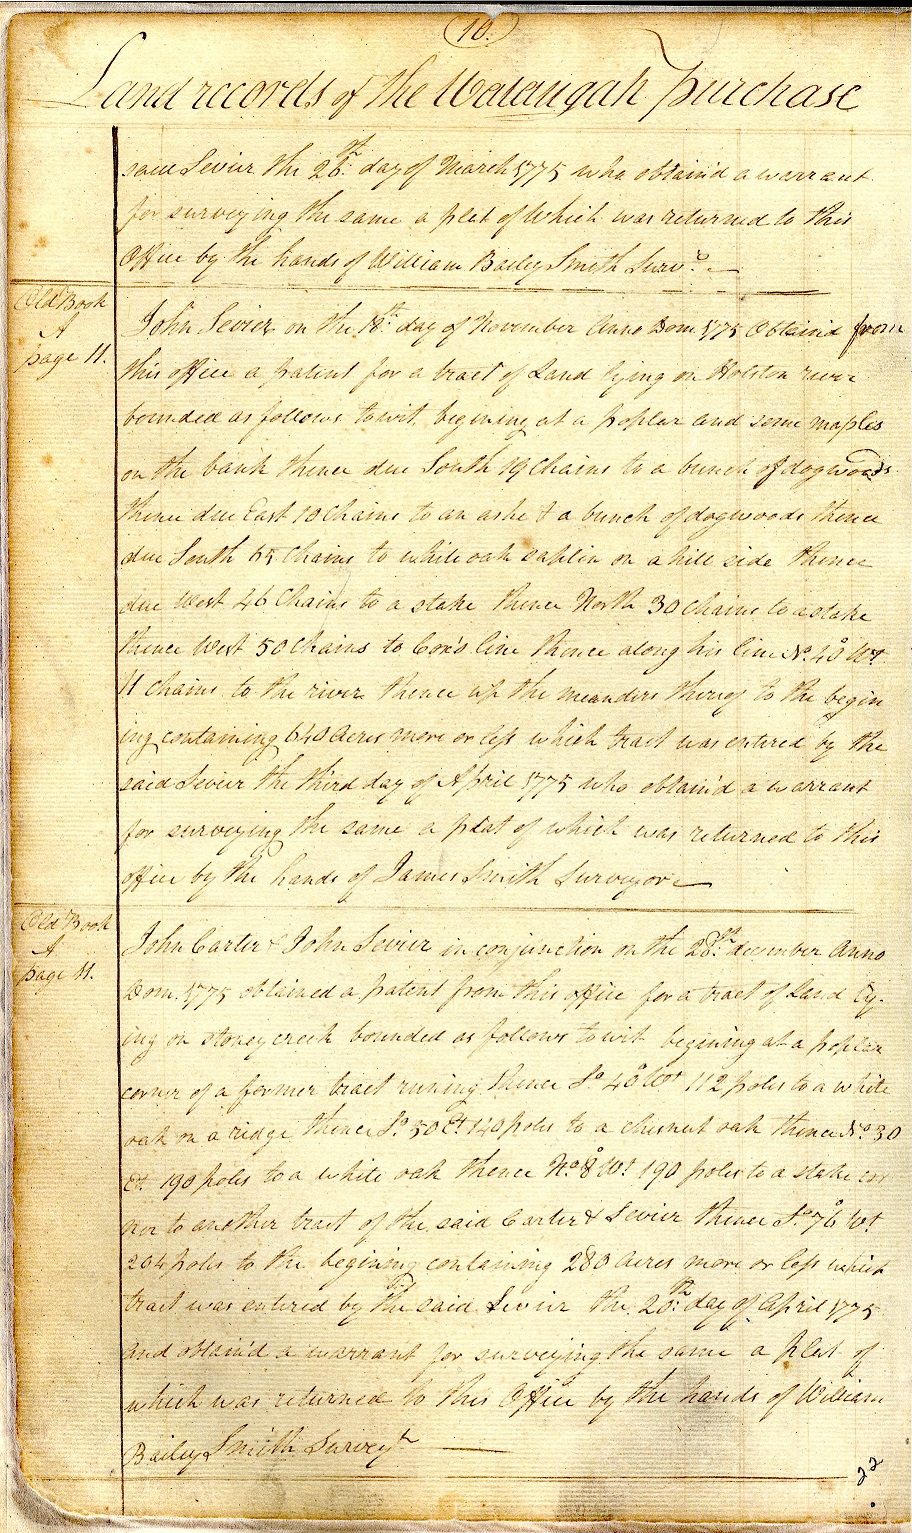 10.
Land records of the Wataugah purchase
said Sevier the 26th day of March 1775 who obtain'd a warrant
for surveying the same a plat of which was returned to this
Office by the hands of William Bailey Smith Survr.
Old Book
A
page 11.
John Sevier on the 18th day of November Anno Dom. 1775 Obtain'd from
this office a patent for a tract of Land lying on Holston river
bounded as follows towit begining at a poplar and some maples
on the bank thence due South 19 Chains to a bunch of dogwoods
thence due East 10 Chains to an ashe & a bunch of dogwoods thence
due South 65 Chains to white oak saplin on a hill side thence
due West 46 Chains to a stake thence North 30 Chains to a stake
thence West 50 Chains to Cox's line thence along his line No. 40 Wt.
11 chains to the river thence up the meanders thereof to the begin
ing containing 640 Acres more or less which tract was entered by the
said Sevier the third day of April 1775 who obtain'd a warrant
for surveying the same a plat of which was returned to this
office by the hands of James Smith Surveyor
Old Book
A
page 11.
John Carter & John Sevier in conjunction on the 28th december Anno
Dom. 1775 obtained a patent from this office for a tract of Land ly-
ing on stoney creek bounded as follows towit begining at a poplar
corner of a former tract runing thence So. 40 Wt 112 poles to a white
oak on a ridge thence So. 50 Et. 140 poles to a chesnut oak thence No. 30
Et. 190 poles to a white oak thence No. 8 Wt. 190 poles to a stake cor
ner to another tract of the said Carter & Sevier thence So. 76 Wt
204 poles to the begining containing 280 Acres more or less which
tract was entered by the said Sevier the 20th day of April 1775
and obtain'd a warrant for surveying the same a plat of
which was returned to this Office by the hands of William
Bailey Smith Surveyr
22